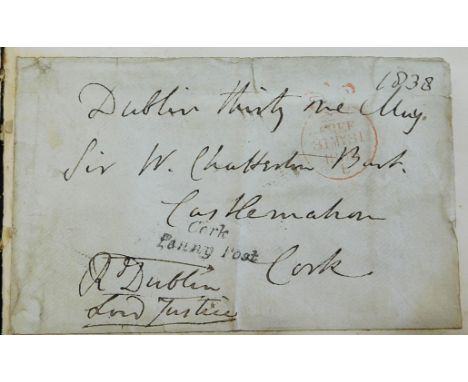 1838
Dublin thirty one May
FREE
31MY31
Sir W. Chatterton Bart.
Castlemahon
Cork
Penny Post
Cork
Rd Dublin
Lord Justice